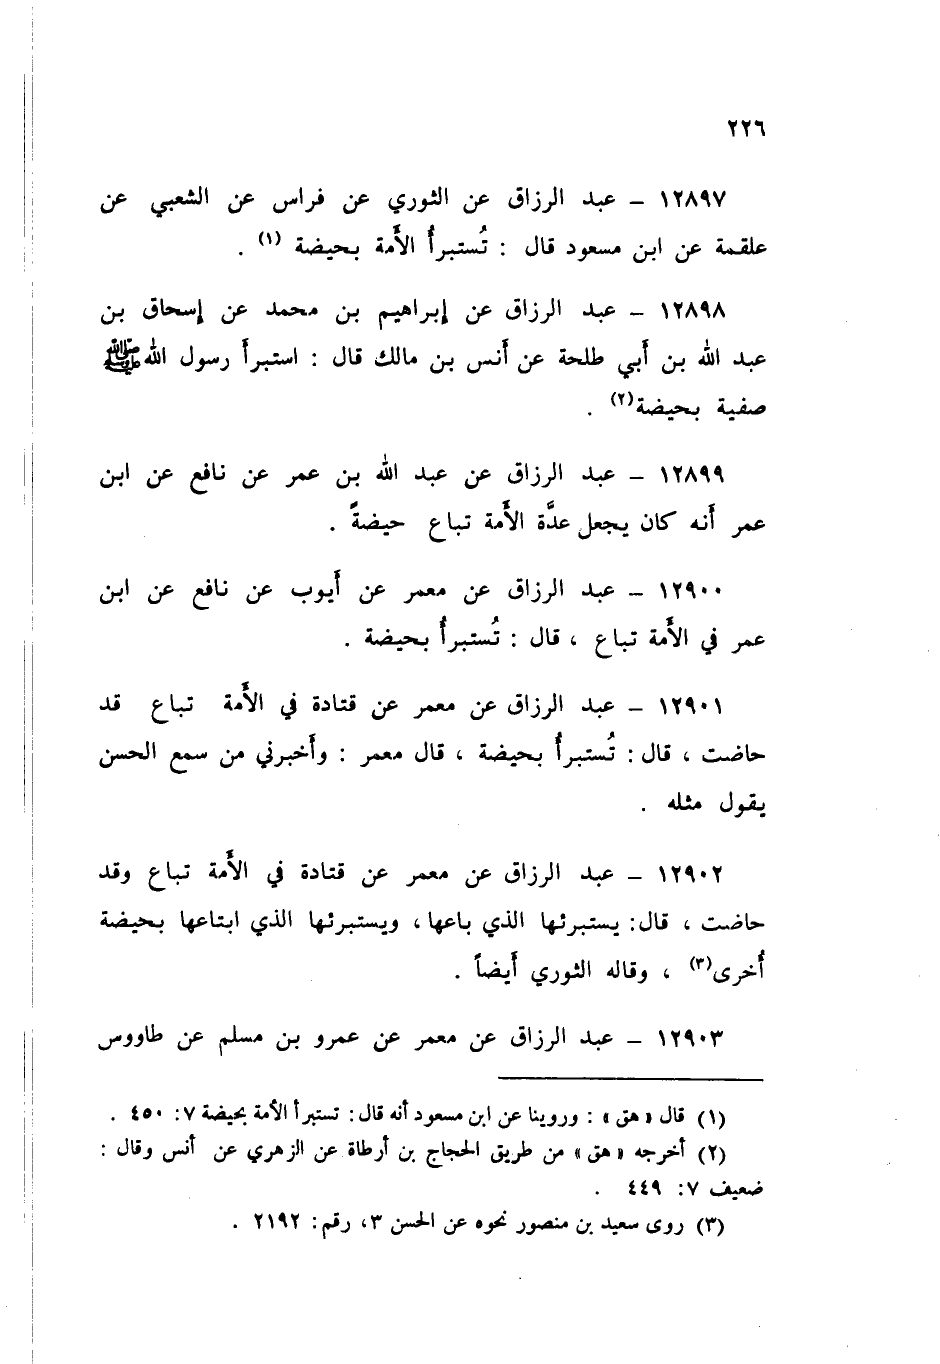 ٢٢٦
١٢٨٩٧ – عبد الرزاق عن الثوري عن فراس عن الشعبي عن
علقمة عن ابن مسعود قال : تُستبرأُ الأَمة بحيضة (١) .
١٢٨٩٨ – عبد الرزاق عن إبراهيم بن محمد عن إسحاق بن
عبد الله بن أَبي طلحة عن أَنس بن مالك قال : استبرأَ رسول الله ﷺ
صفية بحيضة(٢) .
١٢٨٩٩ – عبد الرزاق عن عبد الله بن عمر عن نافع عن ابن
عمر أَنه كان يجعل عدَّة الأَمة تباع حيضةً .
١٢٩٠٠ – عبد الرزاق عن معمر عن أَيوب عن نافع عن ابن
عمر في الأَمة تباع ، قال : تُستبرأُ بحيضة .
١٢٩٠١ – عبد الرزاق عن معمر عن قتادة في الأَمة تباع قد
حاضت ، قال : تُستبرأُ بحيضة ، قال معمر : وأَخبرني من سمع الحسن
يقول مثله .
١٢٩٠٢ – عبد الرزاق عن معمر عن قتادة في الأَمة تباع وقد
حاضت ، قال: يستبرئها الذي باعها ، ويستبرئها الذي ابتاعها بحيضة
أُخرى(٣) ، وقاله الثوري أَيضاً .
١٢٩٠٣ – عبد الرزاق عن معمر عن عمرو بن مسلم عن طاووس
(١) قال «هق» : وروينا عن ابن مسعود أنه قال : تستبرأ الأمة بحيضة ٧: ٤٥٠ .
(٢) أخرجه «هق» من طريق الحجاج بن أرطاة عن الزهري عن أنس وقال :
ضعيف ٧: ٤٤٩ .
(٣) روى سعيد بن منصور نحوه عن الحسن ٣، رقم: ٢١٩٢ .